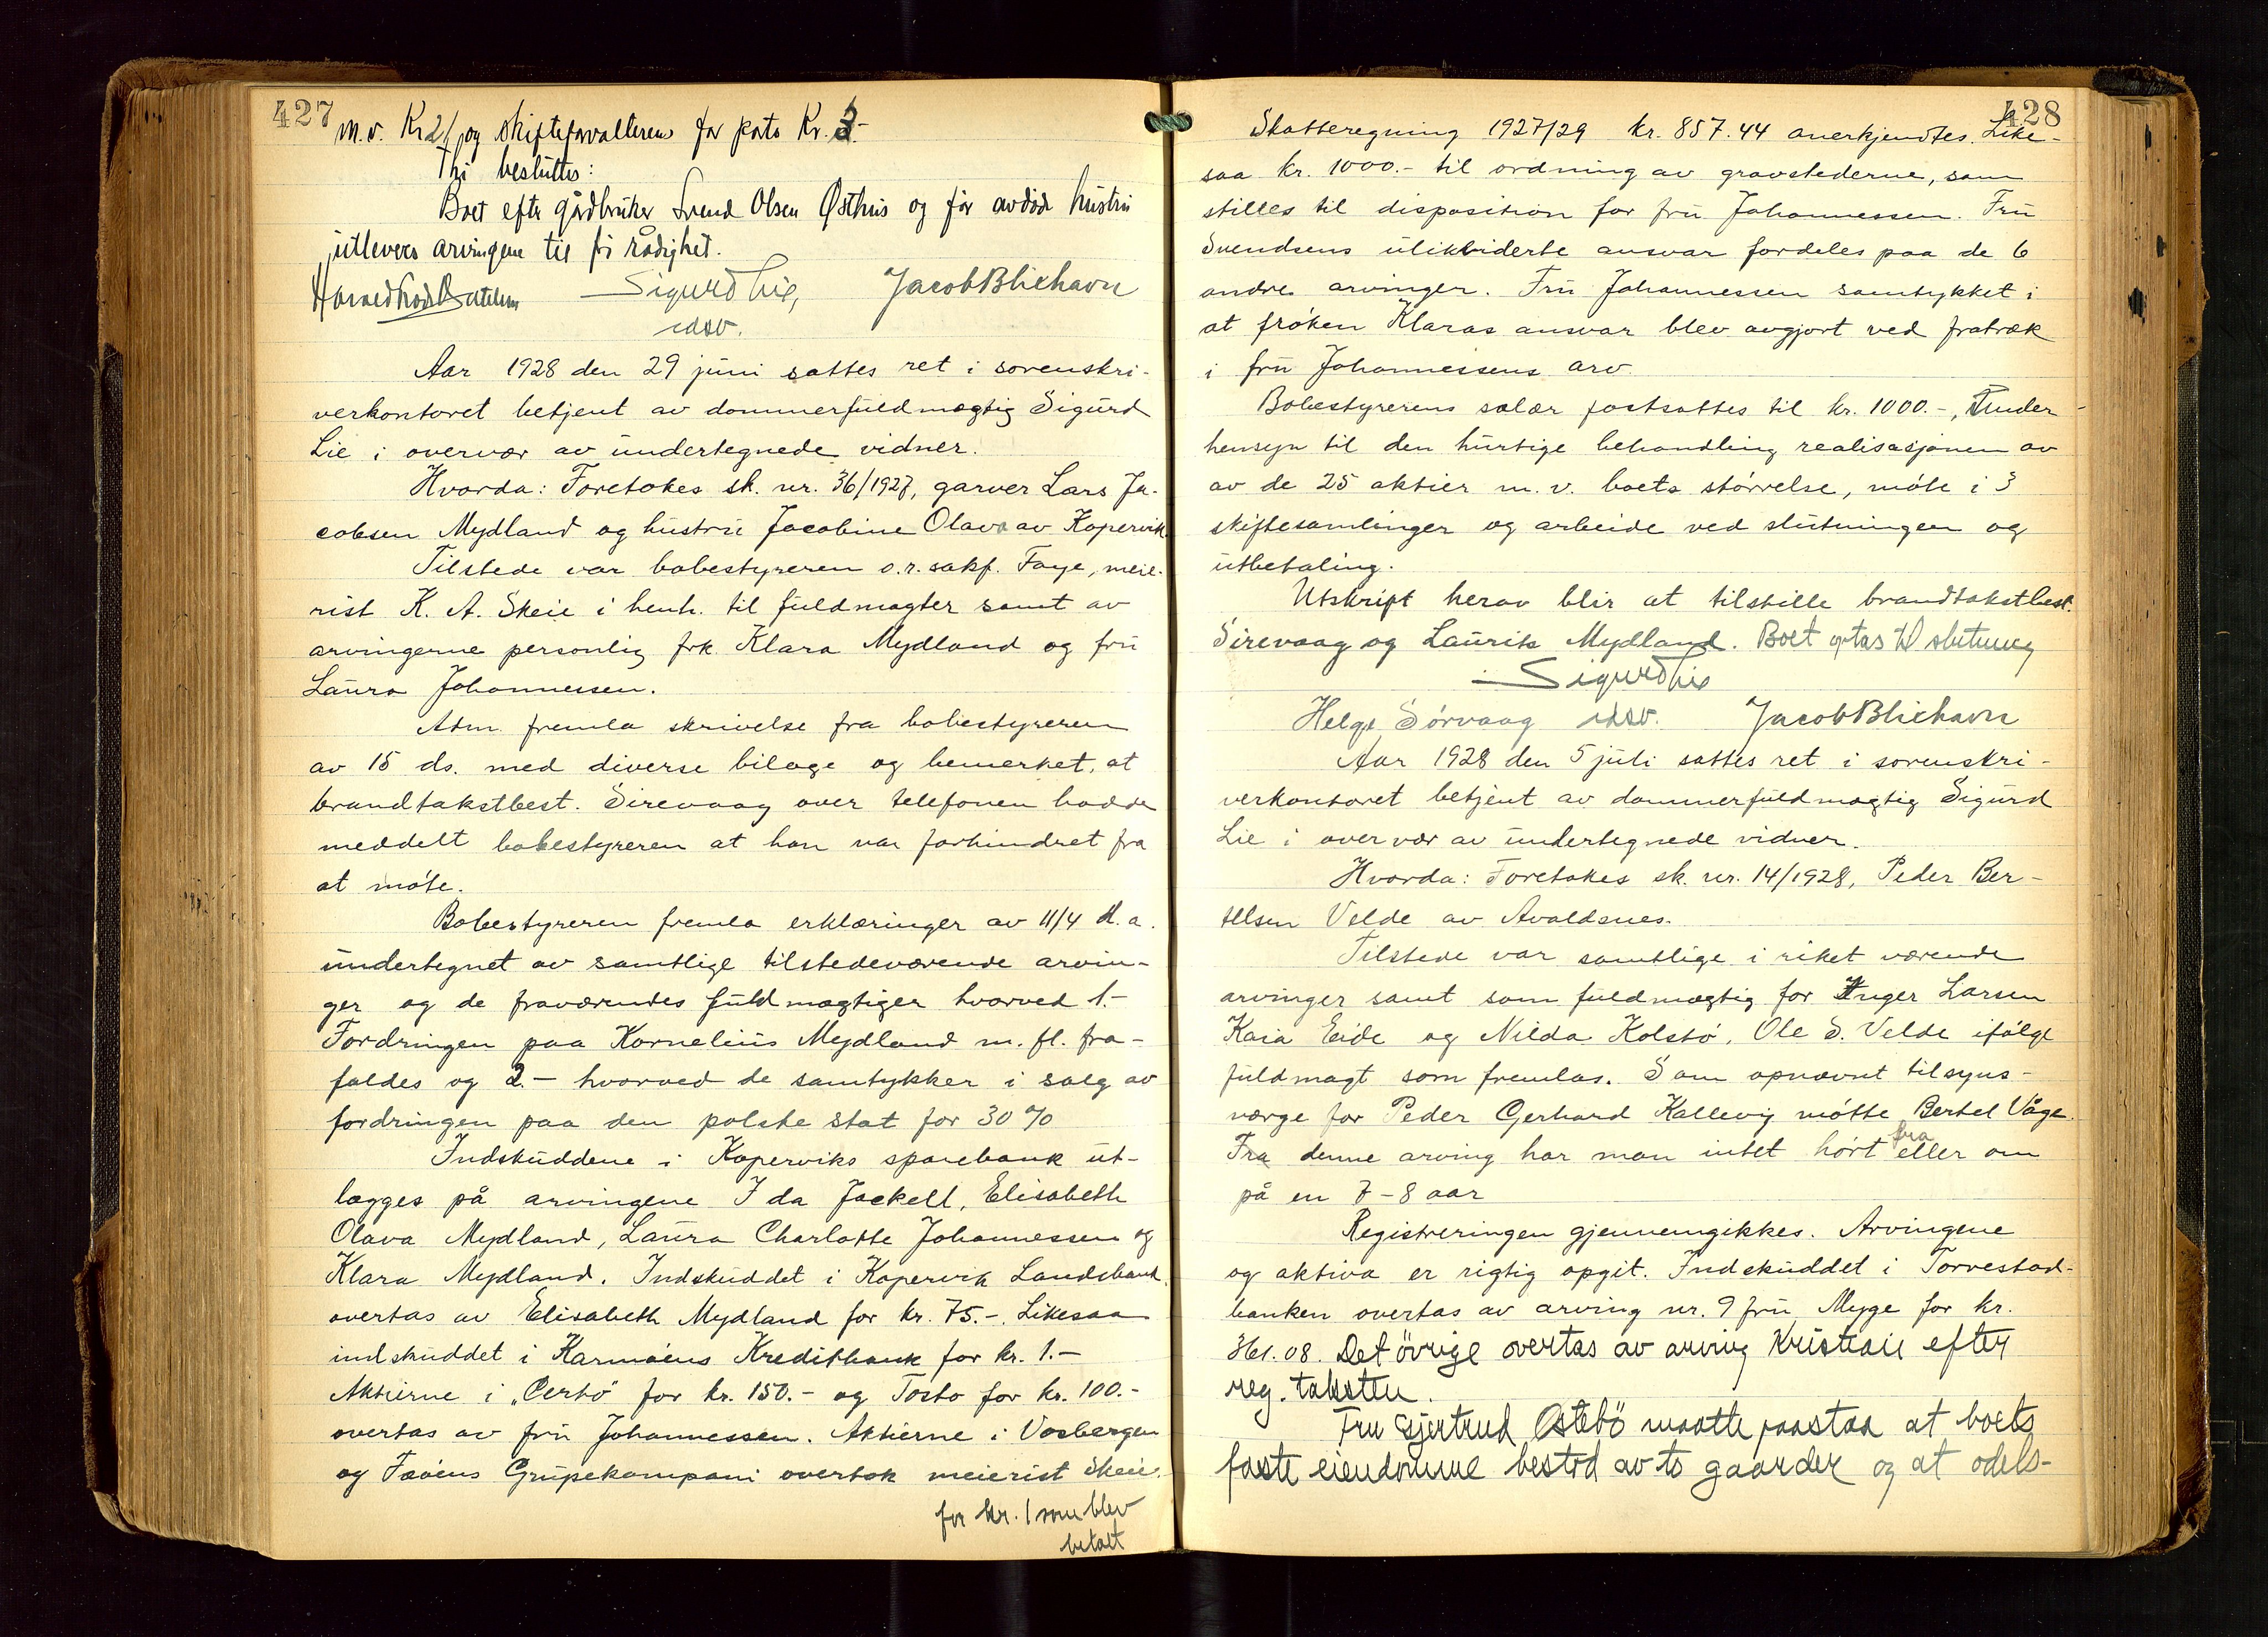 427
m.v. Kr 2/ og skifteforvalteren for porto Kr. 3.-
Thi besluttes:
Boet efter gårdbruker Svend Olsen Østhus og før avdöde hustru
utleveres arvingene til fri rådighet.
Sigurd Lie, Jacob Bliehavn
idsv.
Aar 1928 den 29 juni sattes ret i sorenskri-
verkontoret betjent av dommerfuldmægtig Sigurd
Lie i overvær av undertegnede vidner.
Hvorda: Foretokes sk. nr. 36/1927, garver Lars Ja-
cobsen Mydland og hustru Jacobine Olava av Kopervik.
Tilstede var bobestyreren o.r.sakf. Faye, meie-
rist K. A. Skeie i henh. til fuldmagter samt av
arvingerne personlig frk. Klara Mydland og fru
Laura Johannessen.
Adm. fremla skrivelse fra bobestyreren
av 15 ds. med diverse bilage og bemerket, at
brandtakstbest. Sirevaag over telefonen hadde
meddelt bobestyreren at han var forhindret fra
at møte.
Bobestyreren fremla erklæringer av 11/4 d.a.
undertegnet av samtlige tilstedeværende arvin-
ger og de fraværendes fuldmægtiger hvorved 1.-
Fordringen paa Kornelius Mydland m. fl. fra-
faldes og 2.- hvorved de samtykker i salg av
fordringen paa den polske stat for 30 %
Indskuddene i Koperviks sparebank ut-
lægges på arvingene Ida Jackell, Elisabeth
Olava Mydland, Laura Charlotte Johannessen og
Klara Mydland. Indskuddet i Kopervik Landsbank
overtas av Elisabeth Mydland for kr. 75.-. Likesaa
indskuddet i Karmøens Kreditbank for kr. 1.-
Aktierne i "Certo" for kr. 150.- og Tosto for kr. 100.-
overtas av fru Johannessen. Aktierne i Vosbergen
og Feøens Grubekompani overtok meierist Skeie.
for kr. 1 som blev
betalt
428
Skatteregning 1927/29 kr. 857.44 anerkjendtes. Like-
saa kr. 1000.- til ordning av gravstederne, som
stilles til disposition for fru Johannessen. Fru
Svendsens ulikviderte ansvar fordeles paa de 6
andre arvinger. Fru Johannessen samtykket i
at frøken Klaras ansvar blev avgjort ved fratræk
i fru Johannessens arv.
Bobestyrerens salær fastsattes til kr. 1000.-, under
hensyn til den hurtige behandling realisasjonen av
av de 25 aktier m. v. boets størrelse, møte i 3
skiftesamlinger og arbeide ved slutningen og
utbetaling.
Utskrift herav blir at tilstille brandtakstbest.
Sirevaag og Laurits Mydland. Boet optas til slutning
Sigurd Lie
Helge Sørvaag idsv. Jacob Bliehavn
Aar 1928 den 5 juli sattes ret i sorenskri-
verkontoret betjent av dommerfuldmægtig Sigurd
Lie i overvær av undertegnede vidner.
Hvorda: Foretokes sk. nr. 14/1928, Peder Ber-
telsen Velde av Avaldsnes.
Tilstede var samtlige i riket værende
arvinger samt som fuldmægtig for Inger Larsen
Kaia Eide og Nilda Kolstø, Ole S. Velde ifølge
fuldmagt som fremlas. Som opnævnt tilsyns-
værge for Peder Gerhard Kallevig møtte Bertel Våge.
Fra denne arving har man intet hørt fra eller om
på en 7-8 aar
Registreringen gjennemgikkes. Arvingene
og aktiva er rigtig opgit. Indskuddet i Torvestad-
banken overtas av arving nr. 9 fru Myge for kr.
361.08. Det övrige overtas av arving Kristian efter
reg. taksten.
Fru Gjertrud Østebö maatte paastaa at boets
faste eiendomme bestod av to gaarder og at odels-